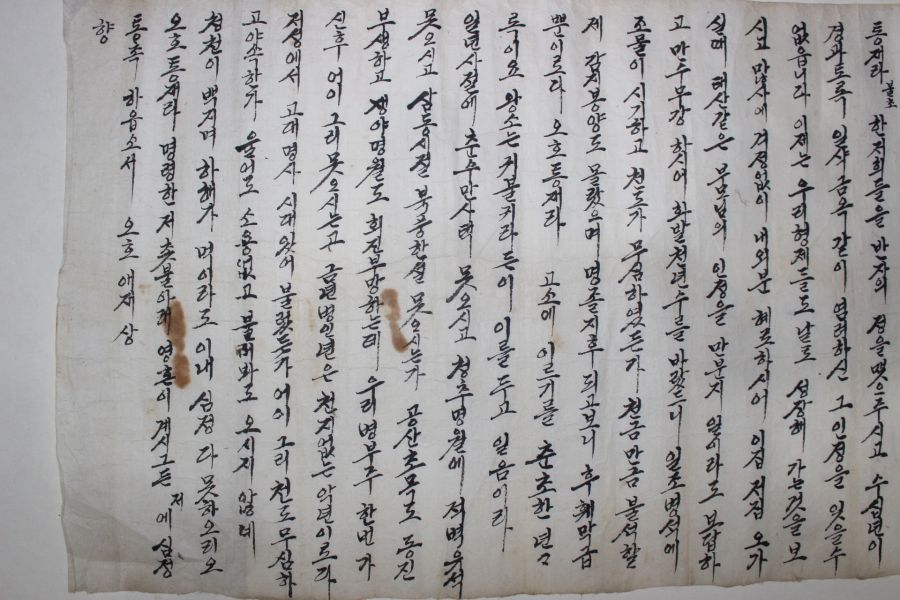 통재라 불초 한저희들을 반자의 정을 맺으주시고 수십년이
경과토록 일사금옥 같이 염려하신 그 인정을 잊을수
없읍니다 이제는 우리형제들도 날로 성장해 가는것을 보
시고 만사에 걱정없이 내외분 해로하시어 이집 저집 오가
실때 태산같은 부모님의 인정을 만분지 일이라도 보답하
고 만수무강 하시어 화발천년수를 바랐드니 일조병석에
조물이 시기하고 천도가 무심하였든가 천금만금 불석할
제 감지봉양도 몰랐으며 명졸지후 되고보니 후회막급
뿐이르라 오호통재라 고소에 이르기를 춘초한 년년
록이요 왕소는 귀불귀라 든이 이를 두고 일음이라
일년사절에 춘수만사택 못오시고 청추명월에 적벽유서
못오시고 삼동시절 북풍한설 못오시는가 공산초목도 동진
부생하고 쟁야명월도 회진부망하는데 우리병부주 한번가
신후 어이 그리 못오시는고 금년병인년은 천지없는 악년이르라
저생에서 고대명사 시대왔어 불렀든가 어이 그리 천도무심하
고 야속한가 울어도 소용없고 불러봐도 오시지 않네
청천이 백지며 하해가 먹이라도 이내 심정 다 못하오리오
오호통재라 명령한 저 촛불아래 영혼이 계시그든 저에 심정
통촉 하옵소서 오호 애재 상
향